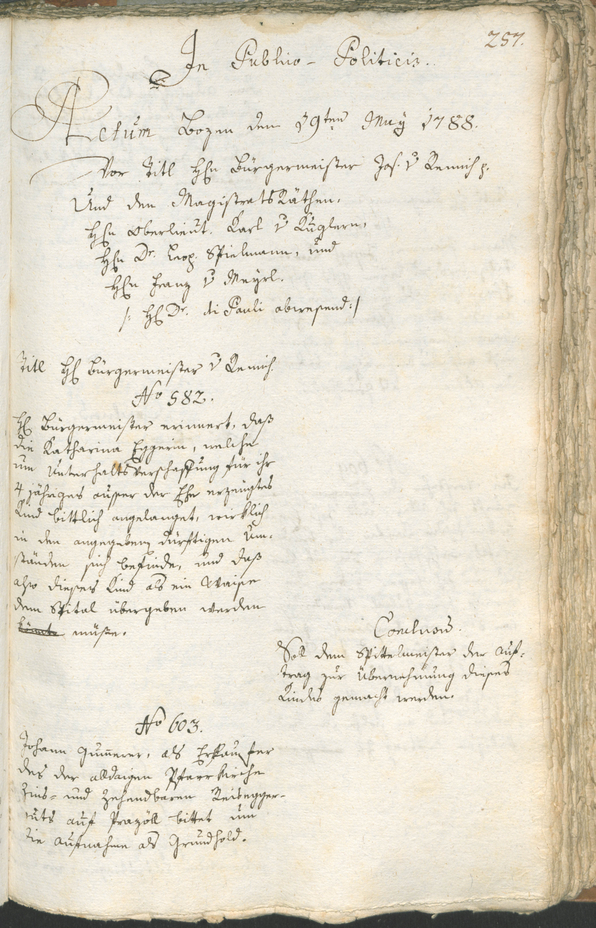 257.
In Publico-Politicis.
Actum Bozen den 19ten May 1788.
Vor Titl Hhn Bürgermeister Jos. v Remich p.
Und den Magistrats Räthen,
Hhn Oberlieut. Karl v Zuglern,
Hhn Dr. Leop. Spielmann, und
Hhn Franz v Mayrl.
/: Hh Dr. di Pauli abwesend :/
Titl Hh Bürgermeister v Remich
No 582.
Hh Bürgermeister erinnert, daß
die Katharina Eggerin, welche
um Unterhalts Verschaffung für ihr
4 jähriges ausser der Ehe erzeugtes
Kind bittlich angelanget, wirklich
in den angegeben dürftigen Um-
ständen sich befinde, und daß
also dieses Kind als ein Waise
dem Spital übergeben werden
könnte müßte.
Conclusum.
Soll dem Spittelmeister der Auf-
trag zur Übernehmung dieses
Kindes gemacht werden.
No 603.
Johann Gummerer, als Erkaufer
des der alldaigen Pfarrkirche
Zins- und Zehendbaren Reitegger-
guts auf Prazöll bittet um
die Aufnahme als Grundhold.